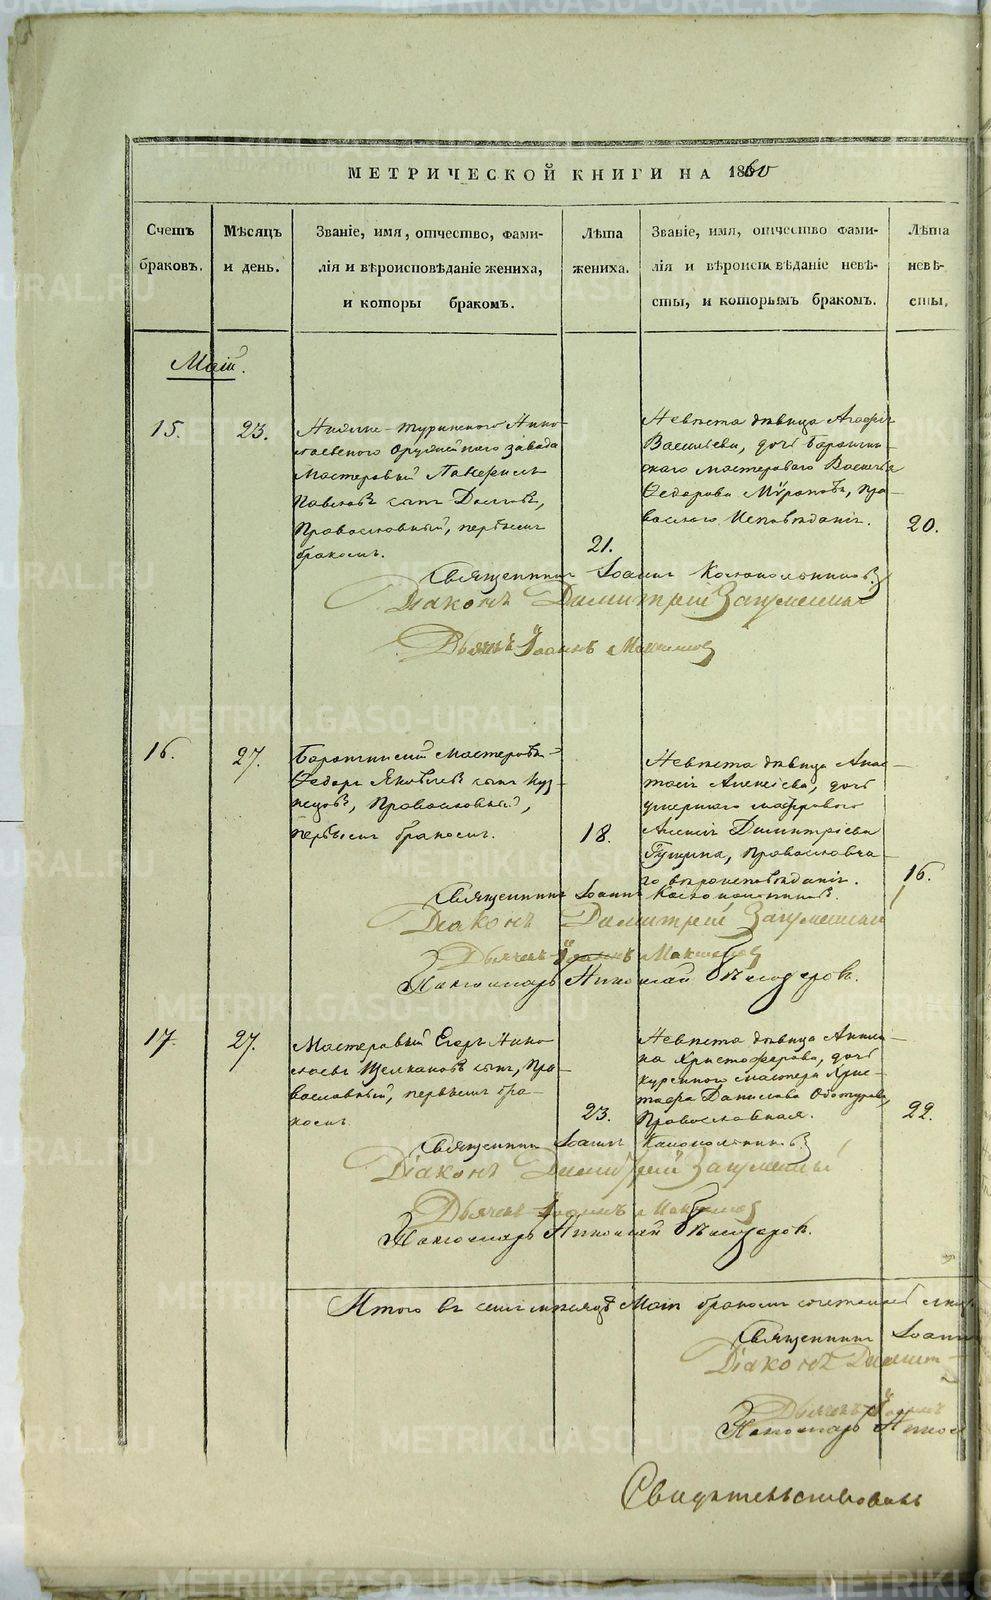 МЕТРИЧЕСКОЙ КНИГИ НА 1860
Счетъ браковъ.
Мѣсяцъ и день.
Званіе, имя, отчество, фами-
лія и вѣроисповѣданіе жениха,
и которы бракомъ.
Лѣта
жениха.
Званіе, имя, отчество фами-
лія и вѣроиспвѣданіе невѣ-
сты, и которымъ бракомъ.
Лѣта
невѣ-
сты.
Маій.
15. 23.
Нижне-Туринскаго Нико-
лаевскаго Оружейнаго завода
Мастеровый
Павловъ сынъ
Православный, первымъ
бракомъ.
21.
Невѣста дѣвица Агафья
Васильева, дочь Баранчин-
скаго мастероваго Василья
Ѳедорова Пра-
вославнаго Исповѣданія.
20.
Священникъ Іоаннъ
Діаконъ Димитрій
Дьячекъ Іоаннъ
16. 27.
Баранчинскій Мастеровый
Ѳедоръ Яковлевъ сынъ Куз-
нецовъ, Православный,
первымъ бракомъ.
18.
Невѣста дѣвица Анас-
тасія Алексѣева, дочь
умершаго мастероваго
Алексѣя Димитріева
Гущина, Православна-
го вѣроисповѣданія.
16.
Священникъ Іоаннъ
Діаконъ Димитрій
Дьячекъ Іоаннъ
Пономарь Николай
17. 27.
Мастеровый Егоръ Нико-
лаевъ сынъ, Пра-
вославный, первымъ бра-
комъ.
23.
Невѣста дѣвица
на Христофорова, дочь
куреннаго мастера Хрис-
тофора Данилова
Православная.
22.
Священникъ Іоаннъ
Діаконъ Димитрій
Дьячекъ Іоаннъ
Пономарь Николай
Итого въ семъ мѣсяцѣ Маіи бракомъ
Священникъ Іоаннъ
Діаконъ Димит-
Дьячекъ Іоаннъ
Пономарь Никол
Свидѣтельствовалъ
METRIKI.GASO-URAL.RU